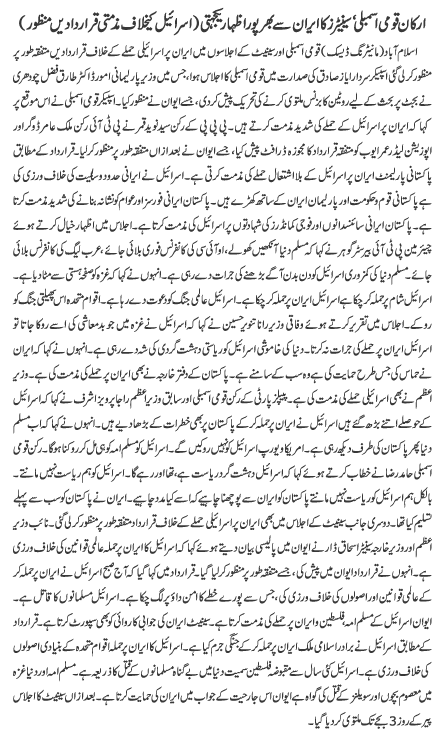 ارکان قومی اسمبلی‘ سینیٹرز کا ایران سے بھرپور اظہار یکجہتی (اسرائیل کیخلاف مذمتی قرارداد یں منظور)
اسلام آباد (مانیٹرنگ ڈیسک) قومی اسمبلی اور سینیٹ کے اجلاسوں میں ایران پر اسرائیلی حملے کے خلاف قراردادیں متفقہ طور پر
منظور کر لی گئی اسپیکر سردار ایاز صادق کی صدارت میں قومی اسمبلی کا اجلاس ہوا، جس میں وزیر پارلیمانی امور ڈاکٹر طارق فضل چودھری
نے بجٹ پر بحث کے لیے روٹین کا بزنس ملتوی کرنے کی تحریک پیش کر دی، جسے ایوان نے منظور کر لیا۔ اسپیکر قومی اسمبلی نے اس موقع پر
کہا کہ ایران پر اسرائیل کے حملے کی شدید مذمت کرتے ہیں۔ پی پی پی کے رکن سید نوید قمر نے پی ٹی آئی رکن ملک عامر ڈوگر اور
اپوزیشن لیڈر عمر ایوب کو متفقہ قرارداد کا مجوزہ ڈرافٹ پیش کیا، جسے ایوان نے بعد ازاں متفقہ طور پر منظور کر لیا۔ قرارداد کے مطابق
پاکستانی پارلیمنٹ ایران پر اسرائیل کے بلا اشتعال حملے کی مذمت کرتی ہے۔ اسرائیل نے ایرانی حدود و سلمیت کی خلاف ورزی کی
ہے۔ پاکستانی قوم و حکومت اور پارلیمان ایران کے ساتھ کھڑے ہیں۔ پاکستان ایرانی فورسز اور عوام کو نشانہ بنانے کی شدید مذمت کرتا
ہے۔ پاکستان ایرانی سائنسدانوں اور فوجی کمانڈرز کی شہادتوں پر اسرائیل کی مذمت کرتا ہے۔ اجلاس میں اظہار خیال کرتے ہوئے
چیئرمین پی ٹی آئی بیرسٹر گوہر نے کہا کہ مسلم دنیا آنکھیں کھولے، او آئی سی کا کانفرنس فوری بلائی جائے، عرب لیگ کی کانفرنس بلائی
جائے۔ مسلم دنیا کی کمزوری اسرائیل کو دن بدن آگے بڑھنے کی جرات دے رہی ہے۔ انہوں نے کہا کہ غزہ کو صفحہ ہستی سے مٹا دیا ہے۔
اسرائیل شام پر حملہ کر چکا ہے اسرائیل ایران پر حملہ کر چکا ہے۔ اسرائیل عالمی جنگ کو دعوت دے رہا ہے۔ اقوام متحدہ اس پھیلتی جنگ کو
روکے۔ اجلاس میں تقریر کرتے ہوئے وفاقی وزیر رانا تنویر حسین نے کہا کہ اسرائیل نے غزہ میں جو بدمعاشی کی اسے روکا جاتا تو
ایران پر حملے کی جرات نہ کرتا۔ دنیا کی خاموشی اسرائیل کو ریاستی دہشت گردی کی شہ دے رہی ہے۔ انہوں نے کہا کہ ایران
نے حماس کی جس طرح حمایت کی ہے وہ سب کے سامنے ہے۔ پاکستان کے دفتر خارجہ نے بھی ایران پر حملے کی مذمت کی ہے۔ وزیر
اعظم نے بھی اسرائیلی حملے کی مذمت کی ہے۔ پیپلز پارٹی کے رکن قومی اسمبلی اور سابق وزیراعظم راجا پرویز اشرف نے کہا کہ اسرائیل
کے حوصلے اتنے بڑھ گئے ہیں اس نے ایران پر حملہ کر کے پاکستان پر بھی خطرات کے بڑھا دیے ہیں۔ انہوں نے کہا کہ اب مسلم
دنیا پھر پاکستان کی طرف دیکھ رہی ہے۔ امریکا و یورپ اسرائیل کو نہیں روکیں گے۔ اسرائیل کو مسلم امہ کو ہی مل کر روکنا ہوگا۔ رکن قومی
اسمبلی حامد رضا نے خطاب کرتے ہوئے کہا کہ اسرائیل دہشت گرد ریاست ہے، تھا، اور رہے گا۔ اسرائیل کو ہم ریاست نہیں مانتے۔
بالکل ہم اسرائیل کو ریاست نہیں مانتے پاکستان کو ایران سے پوچھنا چاہیے کہ اسے کیا مدد چاہیے۔ ایران نے پاکستان کو سب سے پہلے
تسلیم کیا تھا۔ دوسری جانب سینیٹ کے اجلاس میں بھی ایران پر اسرائیلی حملے کے خلاف قرارداد متفقہ طور پر منظور کر لی گئی۔ نائب وزیر
اعظم اور وزیر خارجہ سینیٹر اسحاق ڈار نے ایوان میں پالیسی بیان دیتے ہوئے کہا کہ اسرائیل کا ایران پر حملہ عالمی قوانین کی خلاف ورزی
ہے۔ انہوں نے قرارداد ایوان میں پیش کی، جسے متفقہ طور پر منظور کر لیا گیا۔ قرارداد میں کہا گیا کہ آج صبح اسرائیل نے ایران پر حملہ کر
کے عالمی اصولوں کی خلاف ورزی کی، جس سے پورے خطے کا امن داؤ پر لگ چکا ہے۔ اسرائیل مسلمانوں کا قاتل ہے۔
ایوان اسرائیل کے مسلم امہ، فلسطین و ایران پر حملے کی مذمت کرتا ہے۔ سینیٹ ایران کی جوابی کاروائی کو بھی سپورٹ کرتا ہے۔ قرارداد
کے مطابق اسرائیل نے برادر اسلامی ملک ایران پر حملہ کر کے جنگی جرم کیا ہے۔ اسرائیل کا ایران پر حملہ اقوام متحدہ کے بنیادی اصولوں
کی خلاف ورزی ہے۔ اسرائیل کئی سال سے مقبوضہ فلسطین سمیت دنیا میں بے گناہ مسلمانوں کے قتل کا ذریعہ ہے۔ مسلم امہ اور دنیا غزہ
میں معصوم بچوں اور سویلنز کے قتل کی گواہ ہے ایوان اس جارحیت کے جواب میں ایران کی حمایت کرتا ہے۔ بعد ازاں سینیٹ کا اجلاس
پیر کے روز 3 بجے تک ملتوی کر دیا گیا۔